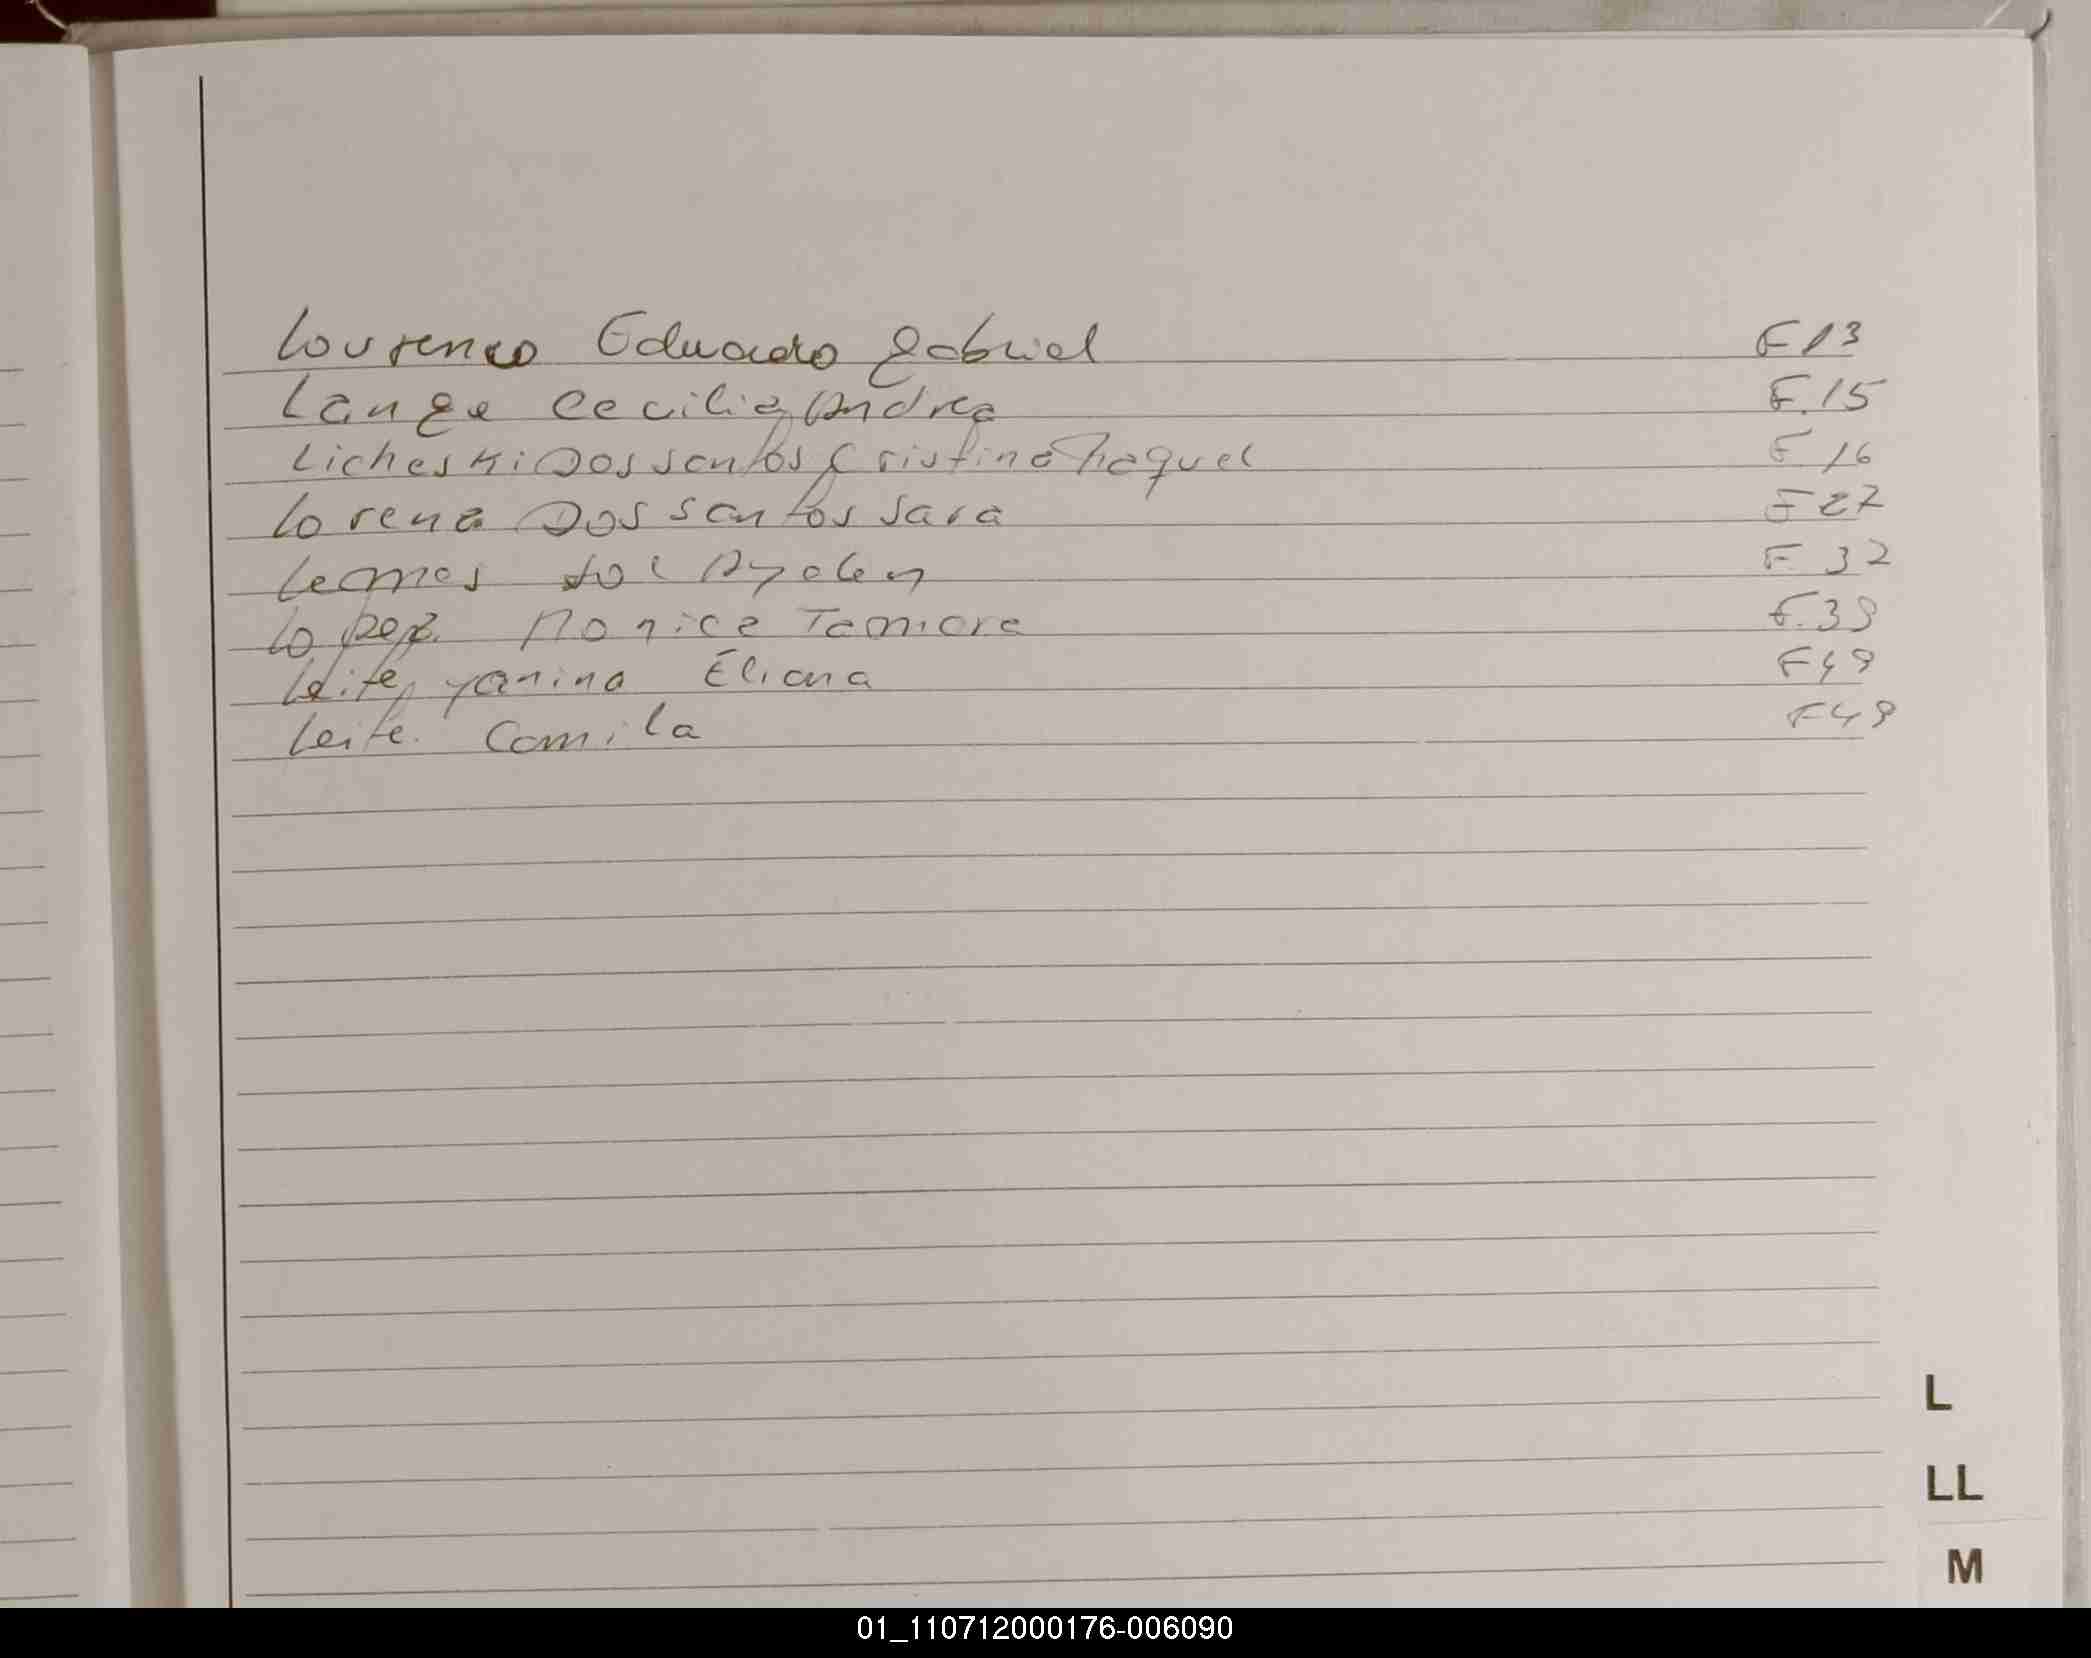 Lourenco Eduardo gabriel F 13
Lange Cecilia Andrea F.15
Licheski Dos santos Cristina Raquel F 16
Lorena Dos santos sara F 27
Lemos sol Ayelen F 32
Lopez Monica Tamara F.39
Leite, yanina Eliana F49
Leite. Camila F49
L
LL
M
01_110712000176-006090